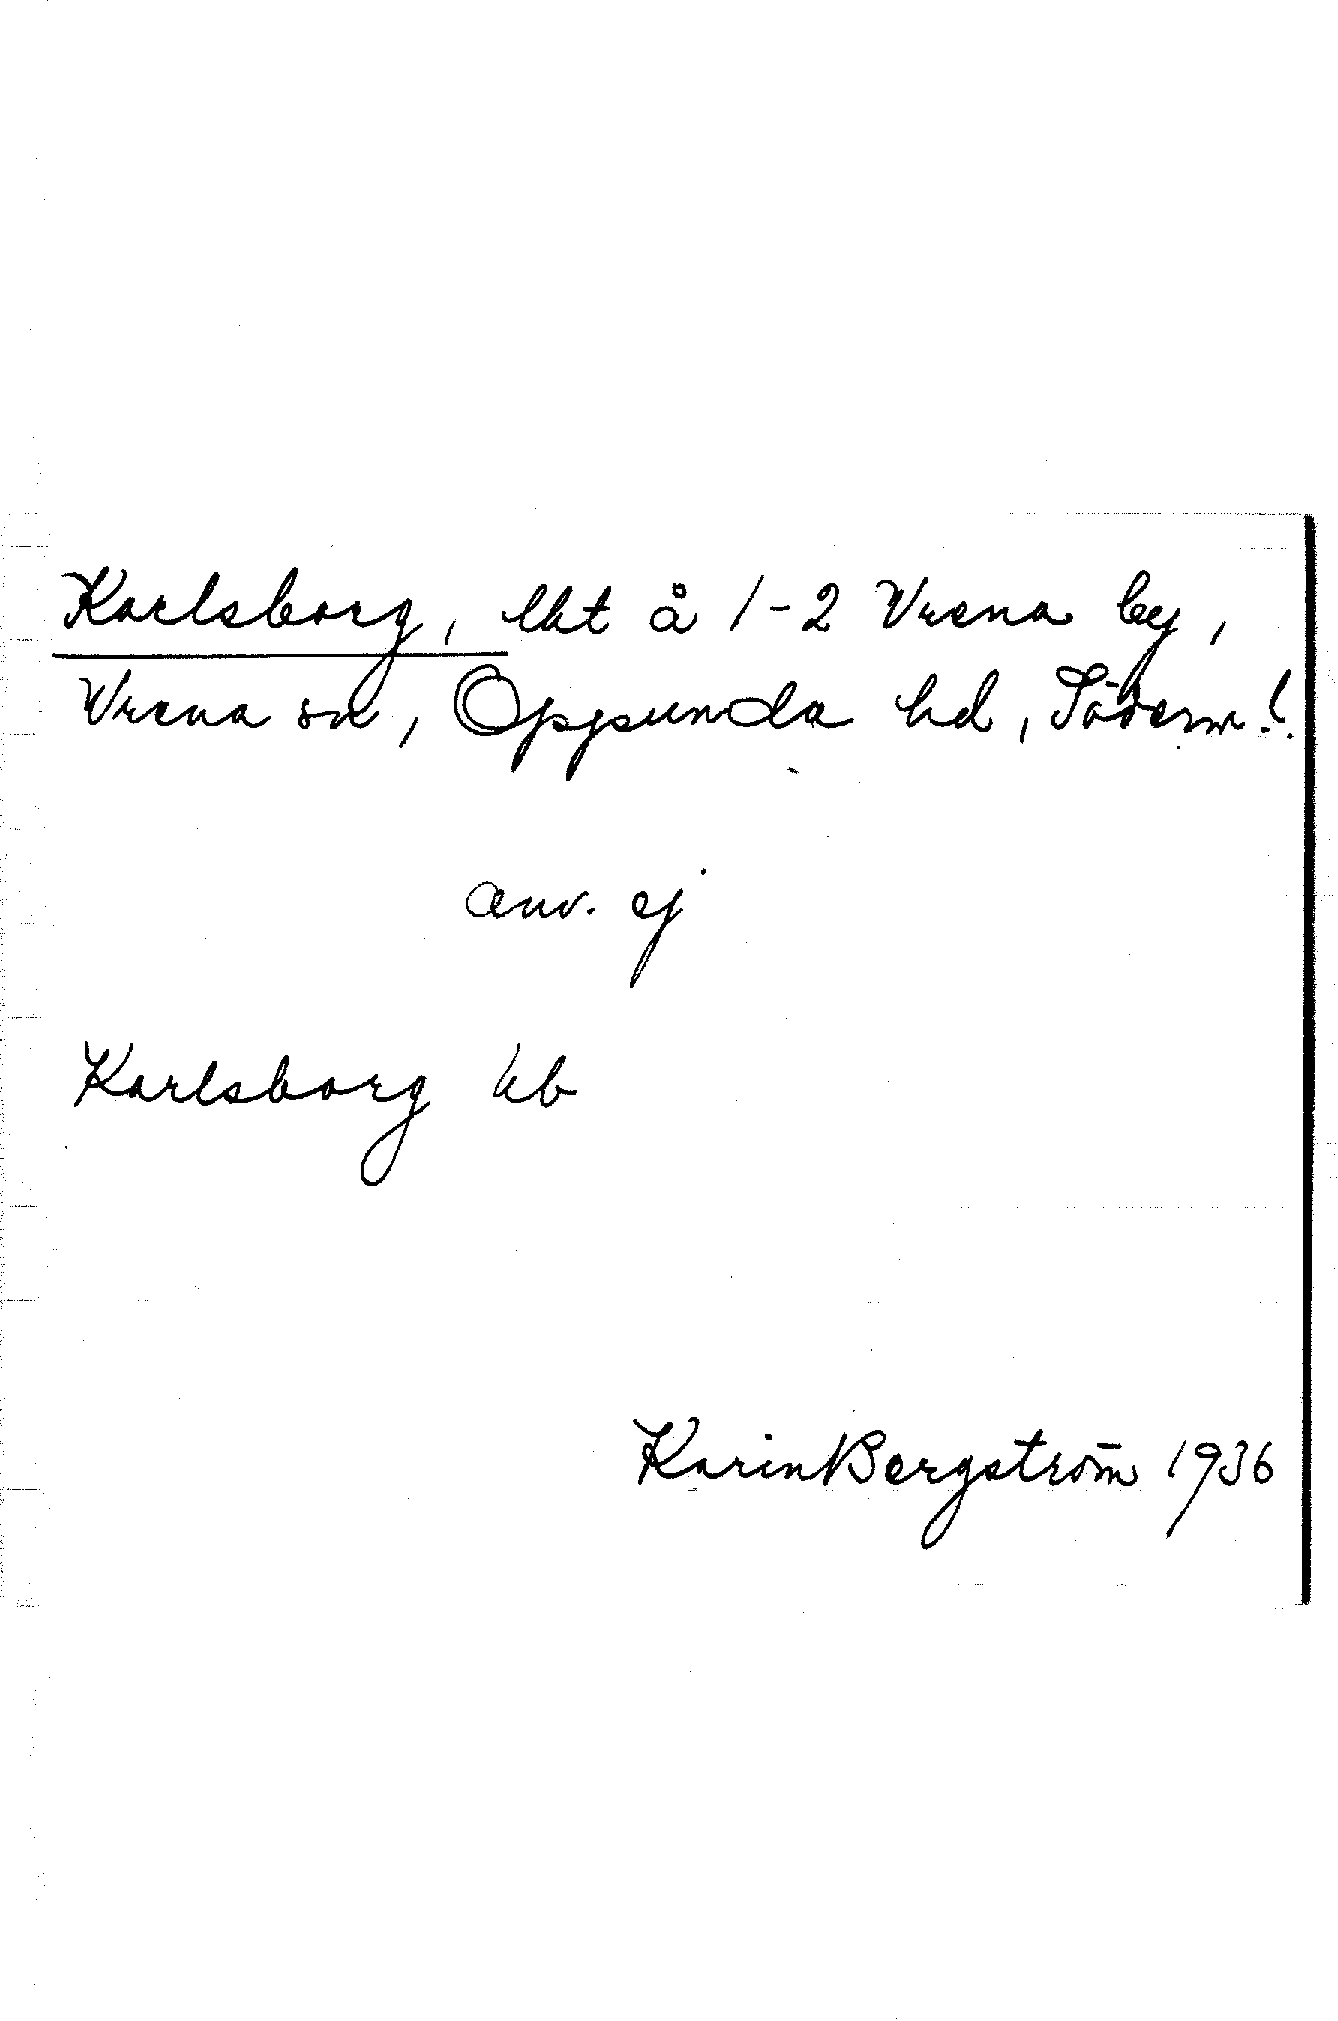 Karlsborg, lht å 1-2 Vrena by,
Vrena sn, Oppunda hd, Söderm. l.
anv. ej
Karlsborg kb
Karin Bergström 1936